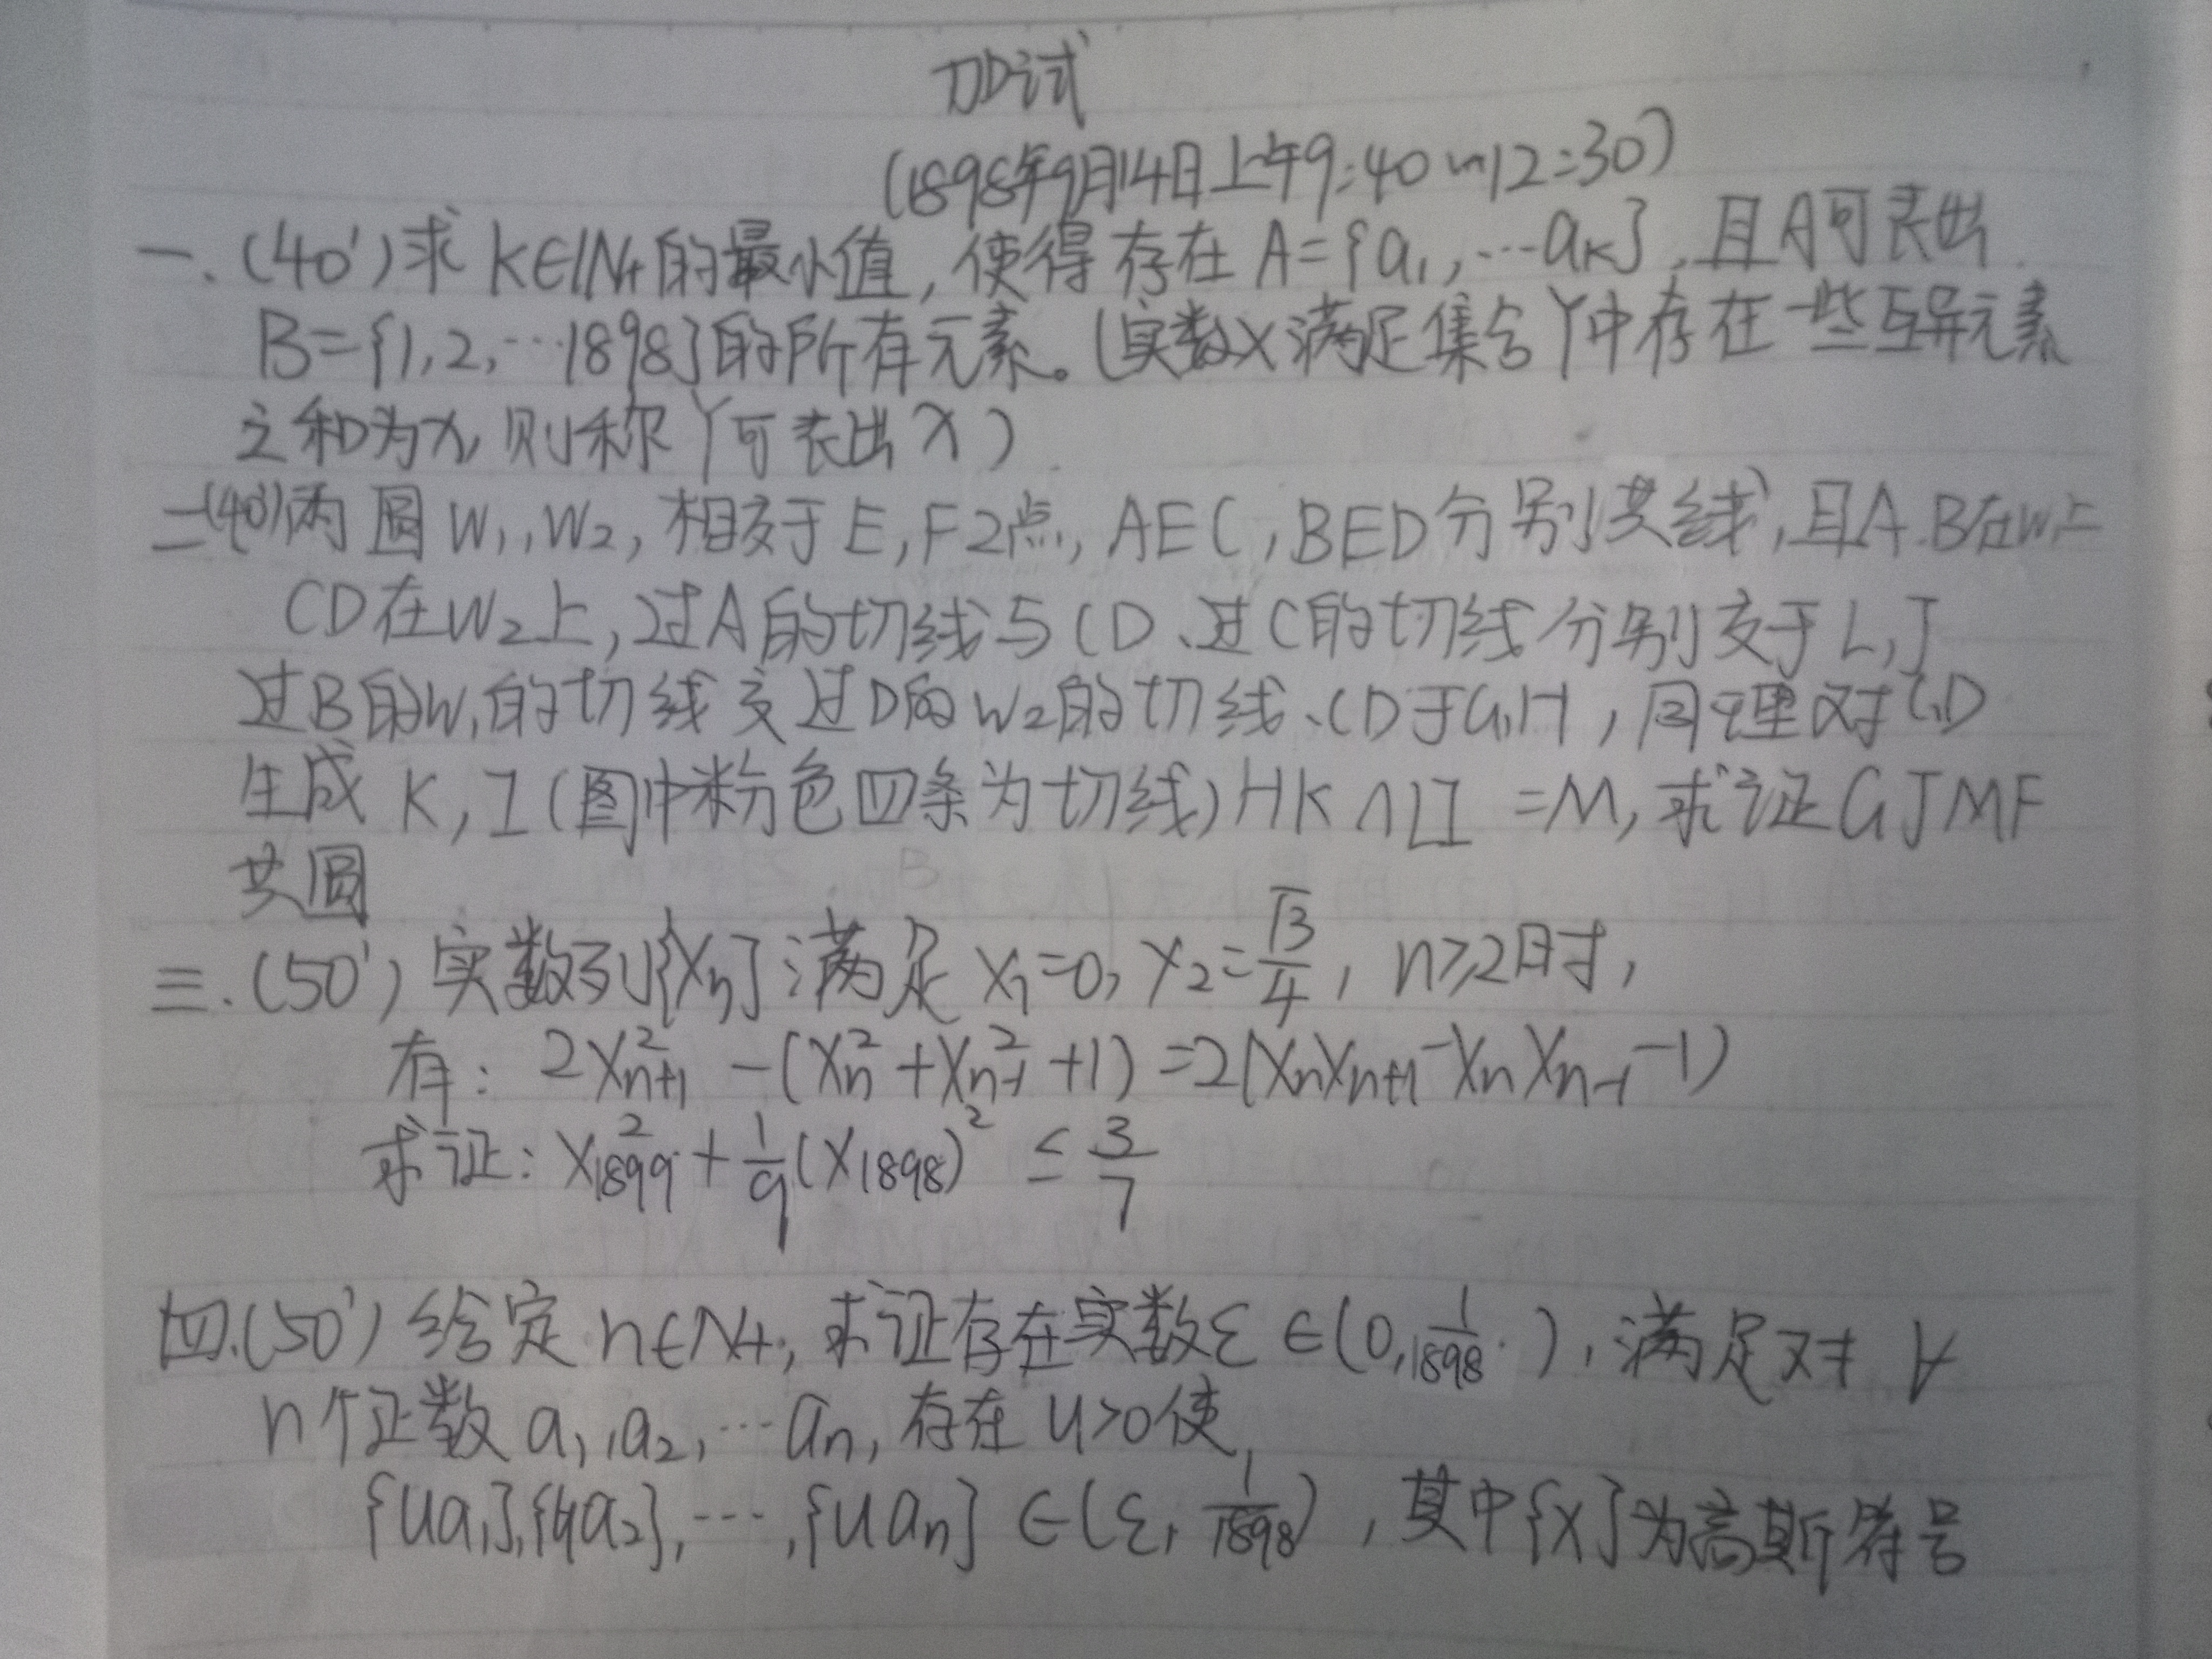 加试
(1898年9月14日上午9:40~12:30)
一.(40')求K∈N+的最小值,使得存在A={a₁,…aₖ},且A可表出
B={1,2,…1898}的所有元素。(实数X满足集合Y中存在一些互异元素
之和为x,则称Y可表出x)
二(40')两圆W₁,W₂,相交于E,F2点,AEC,BED分别共线,且A.B在W₁上
CD在W₂上,过A的切线与CD、过C的切线分别交于L,J
过B的W₁的切线交过D的W₂的切线、CD于G,H,同理对C,D
生成K,I(图中粉色四条为切线)HK∩LI=M,求证GJMF
共圆
三.(50')实数列{Xn}满足X₁=0,X₂=√3/4,n≥2时,
有:2Xₙ₊₁²-(Xₙ²+Xₙ₋₁²+1)=2(XₙXₙ₊₁-XₙXₙ₋₁-1)
求证:X₁₈₉₉²+1/9(X₁₈₉₈)²≤3/7
四.(50')给定n∈N+,求证存在实数ε∈(0,1/1898),满足对∀
n个正数a₁,a₂,…aₙ,存在u>0使
{ua₁},{ua₂},…,{uaₙ}∈(ε,1/1898),其中{x}为高斯符号